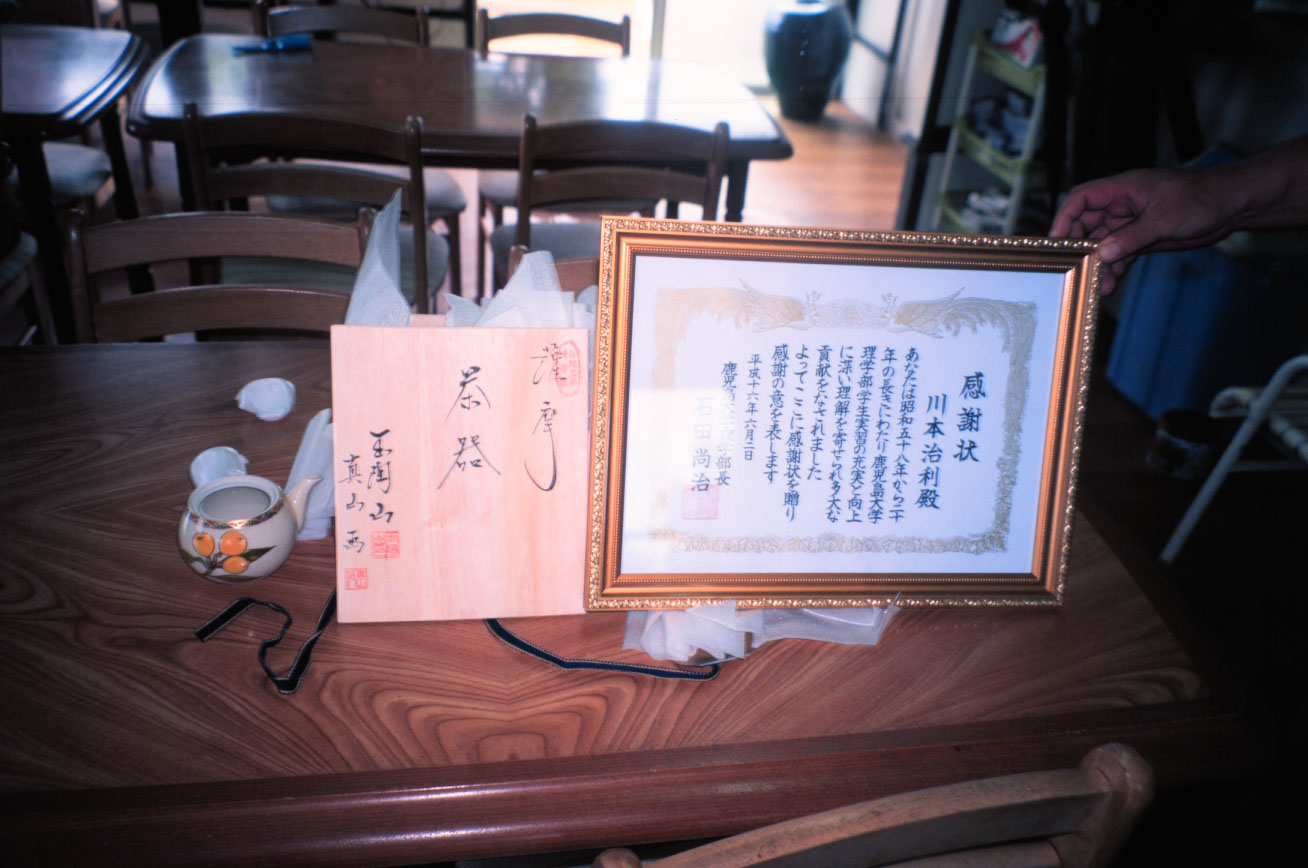 感謝状
川本治利殿
あなたは昭和五十八年から二十
年の長きにわたり鹿児島大学
理学部学生実習の充実と向上
に深い理解を寄せられ多大な
貢献をなされました
よってここに感謝状を贈り
感謝の意を表します
平成十六年六月二日
鹿児島大学理学部長
石田尚治
薩摩
茶器
陶山
真山画